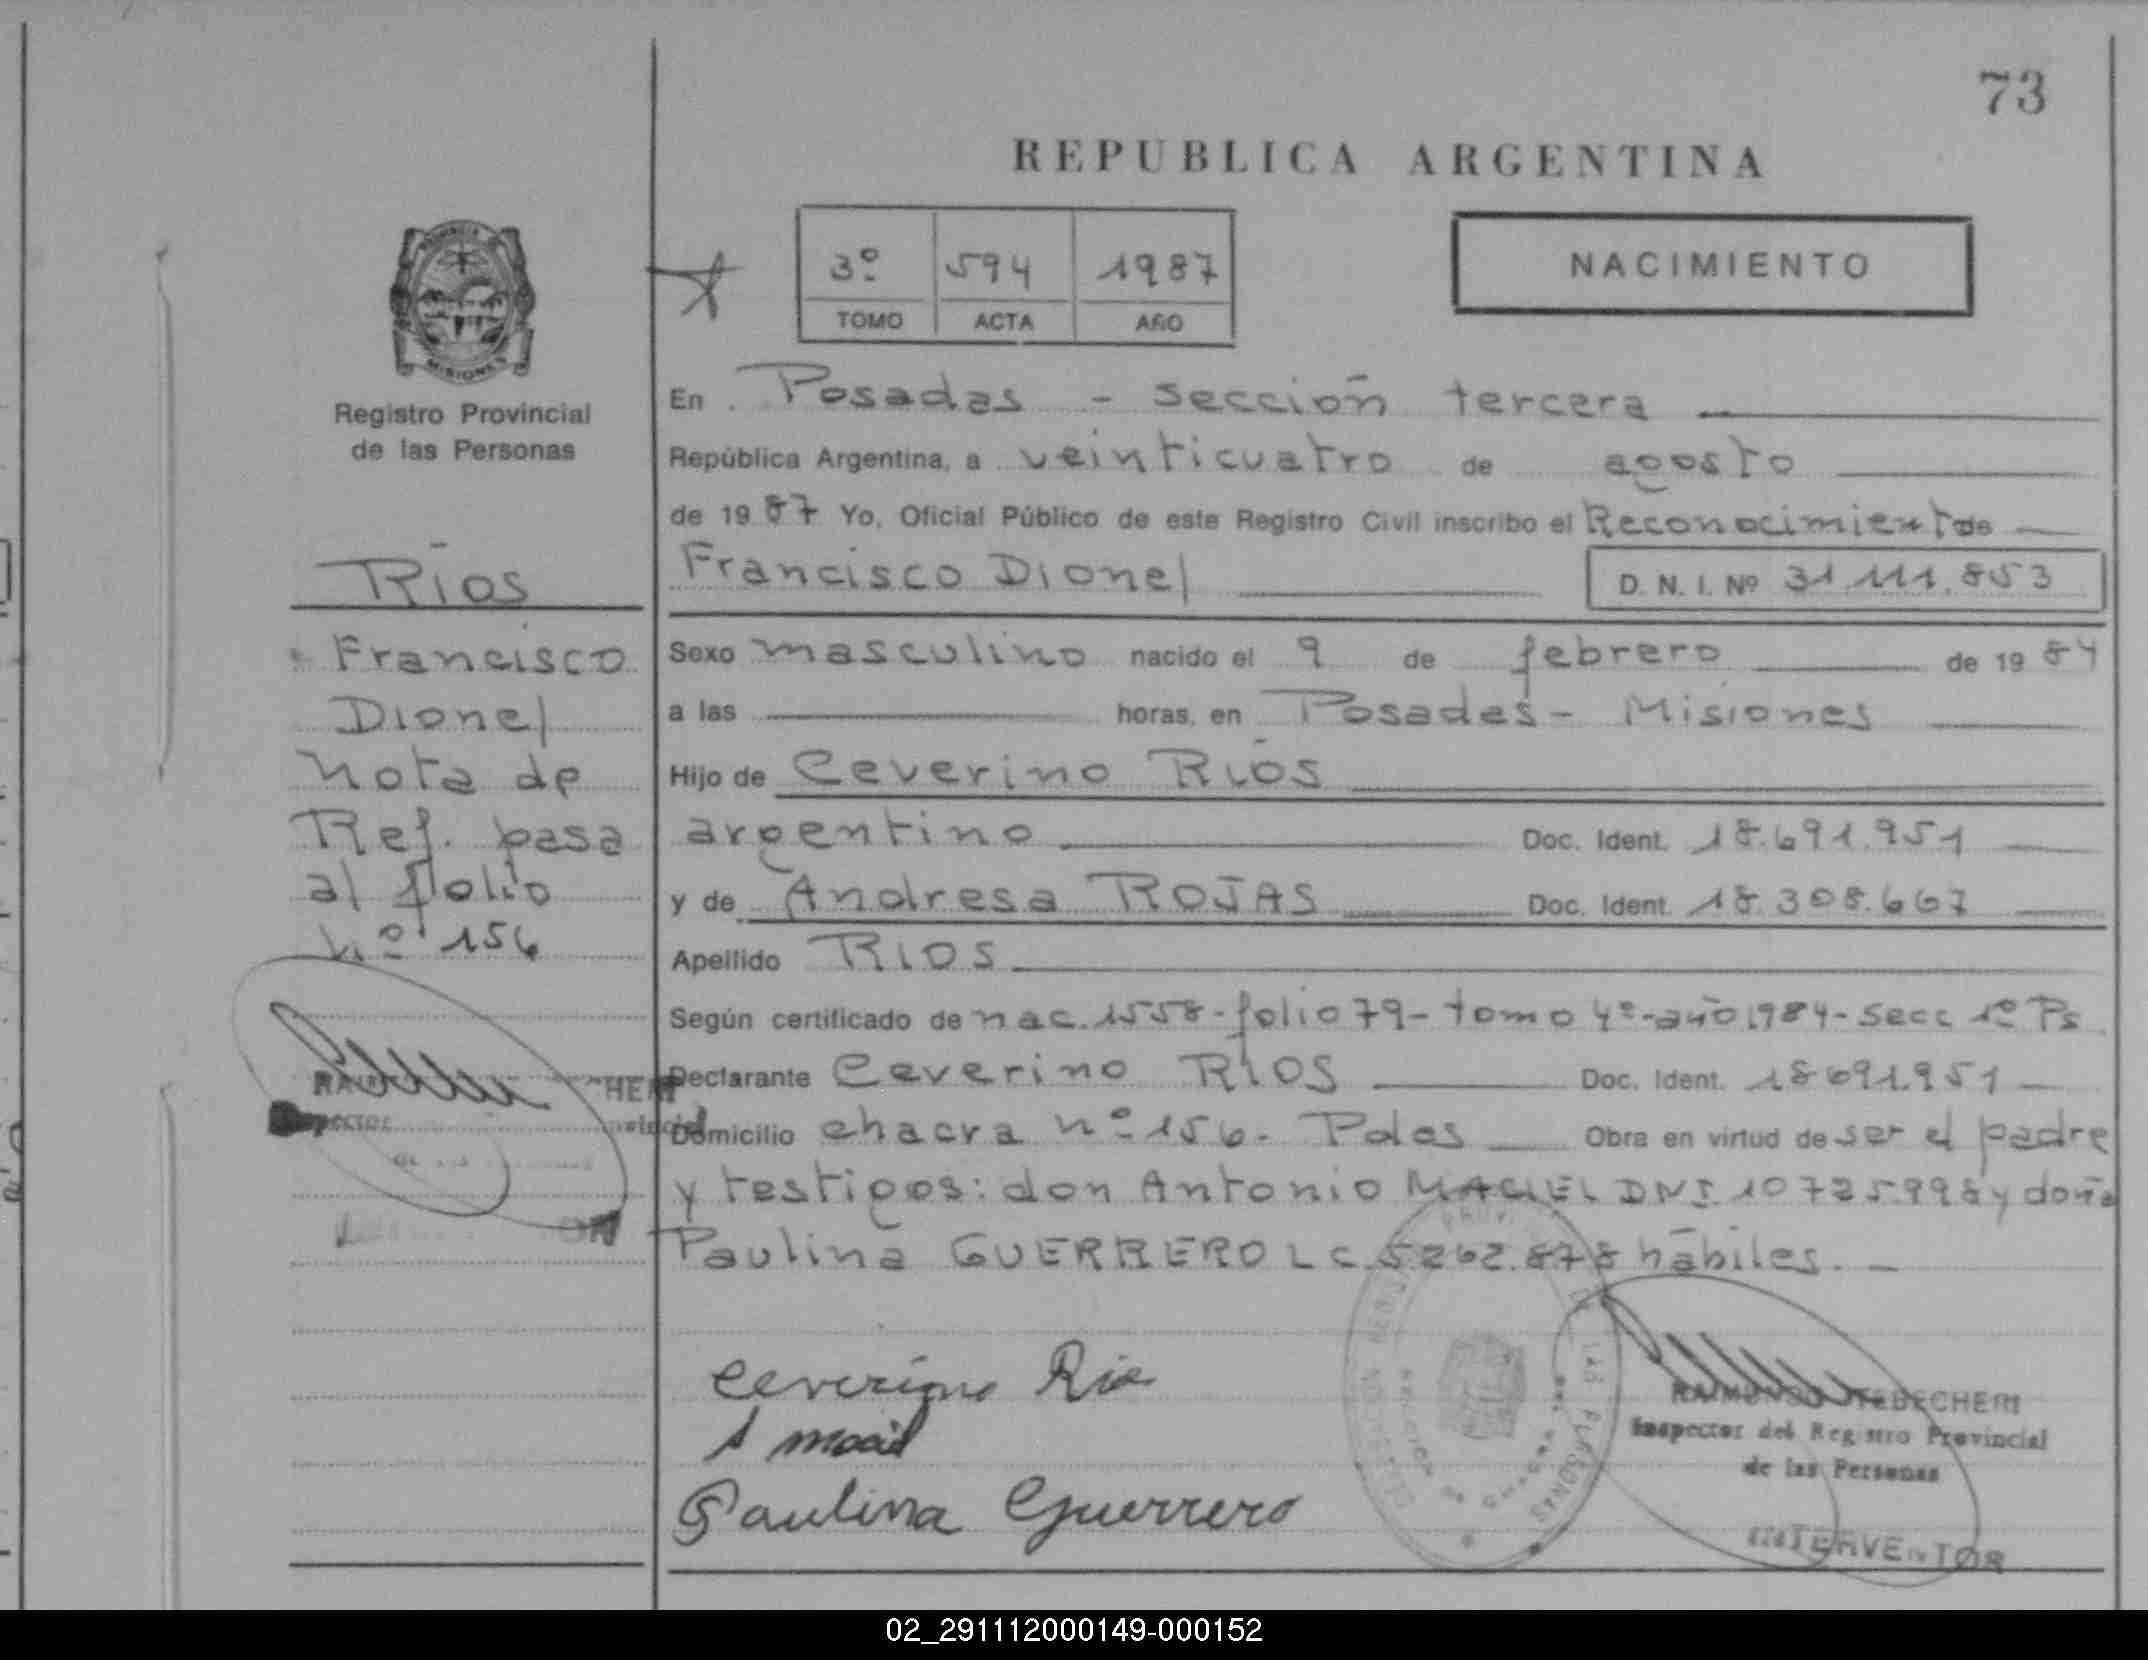 73
REPUBLICA ARGENTINA
3º 594 1987
TOMO ACTA AÑO
NACIMIENTO
PROVINCIA
MISIONES
Registro Provincial
de las Personas
Ríos
Francisco
Dionel
Nota de
Ref. pasa
al folio
Nº 156
En Posadas - sección tercera
República Argentina, a veinticuatro de agosto
de 1987 Yo, Oficial Público de este Registro Civil inscribo el Reconocimiento de
Francisco Dionel D. N. I. Nº 31.111.853
Sexo masculino nacido el 9 de febrero de 1984
a las horas, en Posadas - Misiones
Hijo de Ceverino Ríos
argentino Doc. Ident. 18.691.951
y de Andresa ROJAS Doc. Ident. 18.308.667
Apellido RIOS
Según certificado de nac. 1558-folio 79-tomo 4º-año 1984-secc 1º Ps
Declarante Ceverino Ríos Doc. Ident. 18691.951
Domicilio chacra nº 156- Pdas Obra en virtud de ser el padre
y testigos: don Antonio MACIEL DNI 10725998 y doña
Paulina GUERRERO LC 5262.878 hábiles.
Ceverino Rio
A maciel
Paulina Guerrero
RAIMUNDO
Inspector del Registro Provincial
de las Personas
INTERVENTOR
02_291112000149-000152